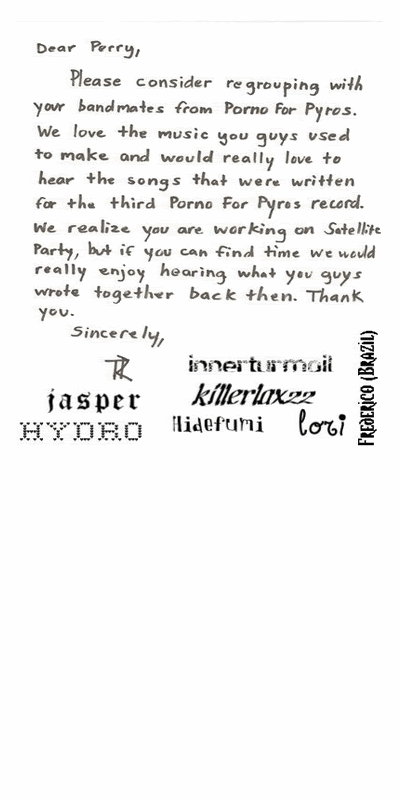 Dear Perry,
Please consider regrouping with
your bandmates from Porno For Pyros.
We love the music you guys used
to make and would really love to
hear the songs that were written
for the third Porno For Pyros record.
We realize you are working on Satellite
Party, but if you can find time we would
really enjoy hearing what you guys
wrote together back then. Thank
you.
Sincerely,
innerturmoil
jasper
killerlaxzz
HYDRO
Hidefumi
lori
Frederico (Brazil)